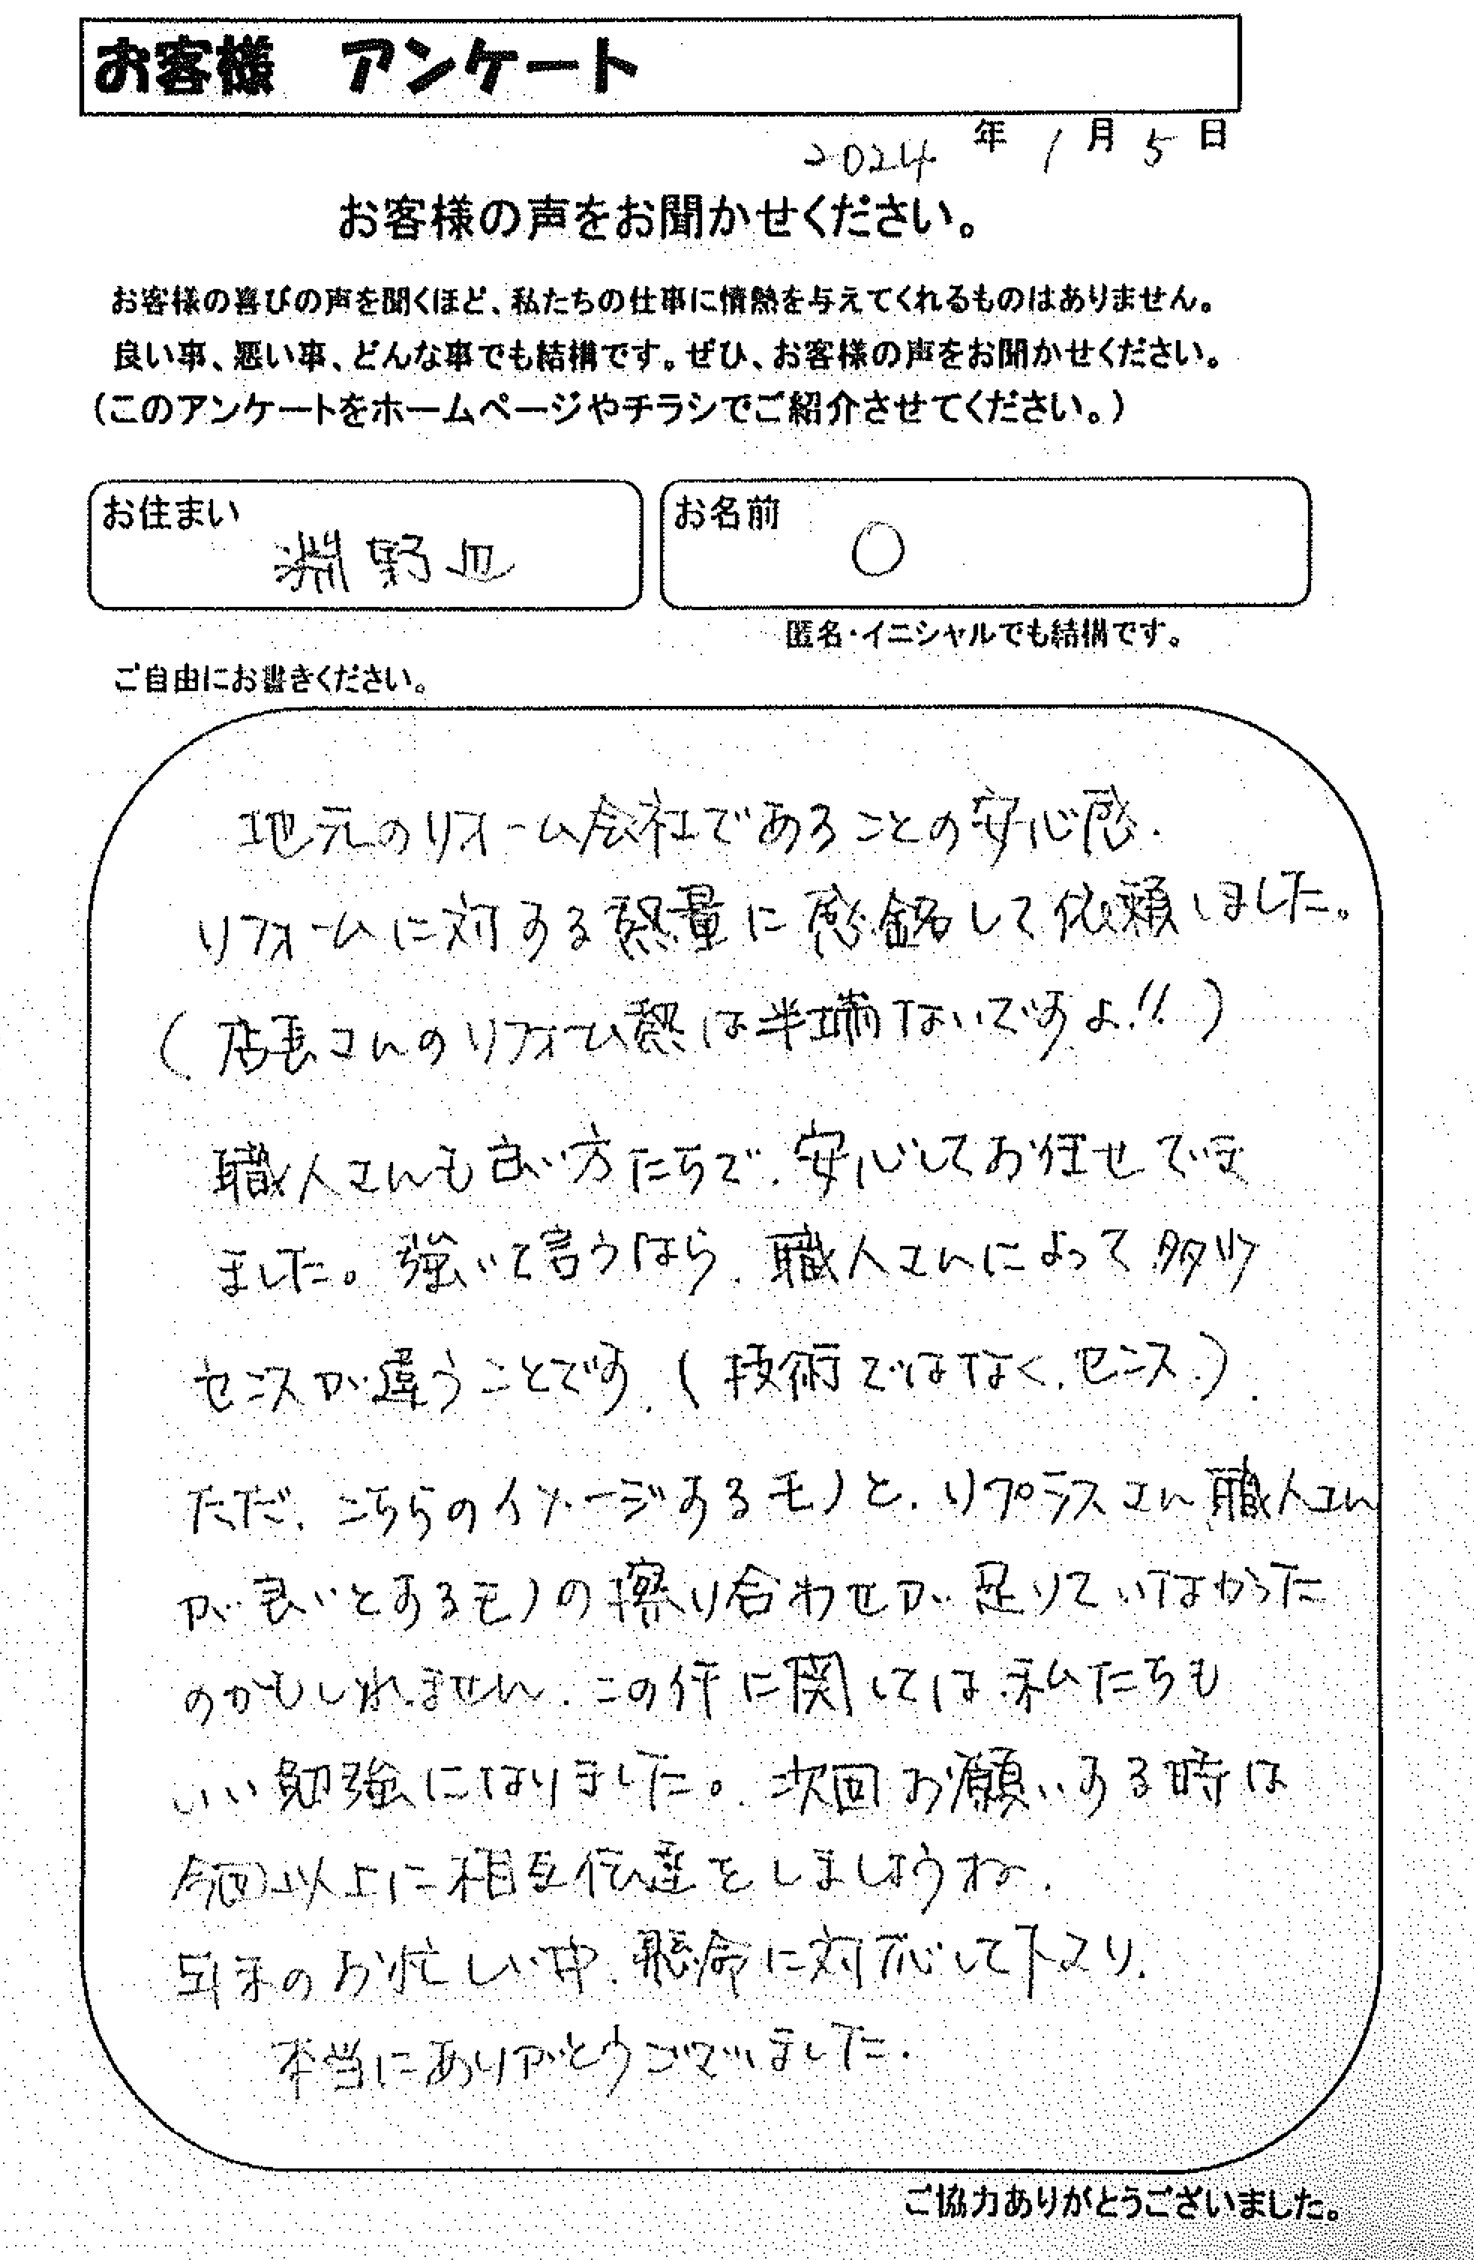 お客様 アンケート
2024 年 1 月 5 日
お客様の声をお聞かせください。
お客様の喜びの声を聞くほど、私たちの仕事に情熱を与えてくれるものはありません。
良い事、悪い事、どんな事でも結構です。ぜひ、お客様の声をお聞かせください。
(このアンケートをホームページやチラシでご紹介させてください。)
お住まい 淵野辺
お名前 〇
匿名・イニシャルでも結構です。
ご自由にお書きください。
地元のリフォーム会社であることの安心感.
リフォームに対する熱量に感銘して依頼しました。
(店長さんのリフォーム熱は半端ないですよ!!)
職人さんも良い方たちで、安心してお任せでき
ました。強いて言うなら、職人さんによって多少
センスが違うことです.(技術ではなく、センス.).
ただ、こちらのイメージするモノと、リプラスさん職人さん
が良いとするモノの擦り合わせが足りていなかった
のかもしれません. この件に関しては、私たちも
いい勉強になりました。次回お願いする時は
今回以上に相互伝達をしましょうね.
年末のお忙しい中、懸命に対応して下さり、
本当にありがとうございました.
ご協力ありがとうございました。